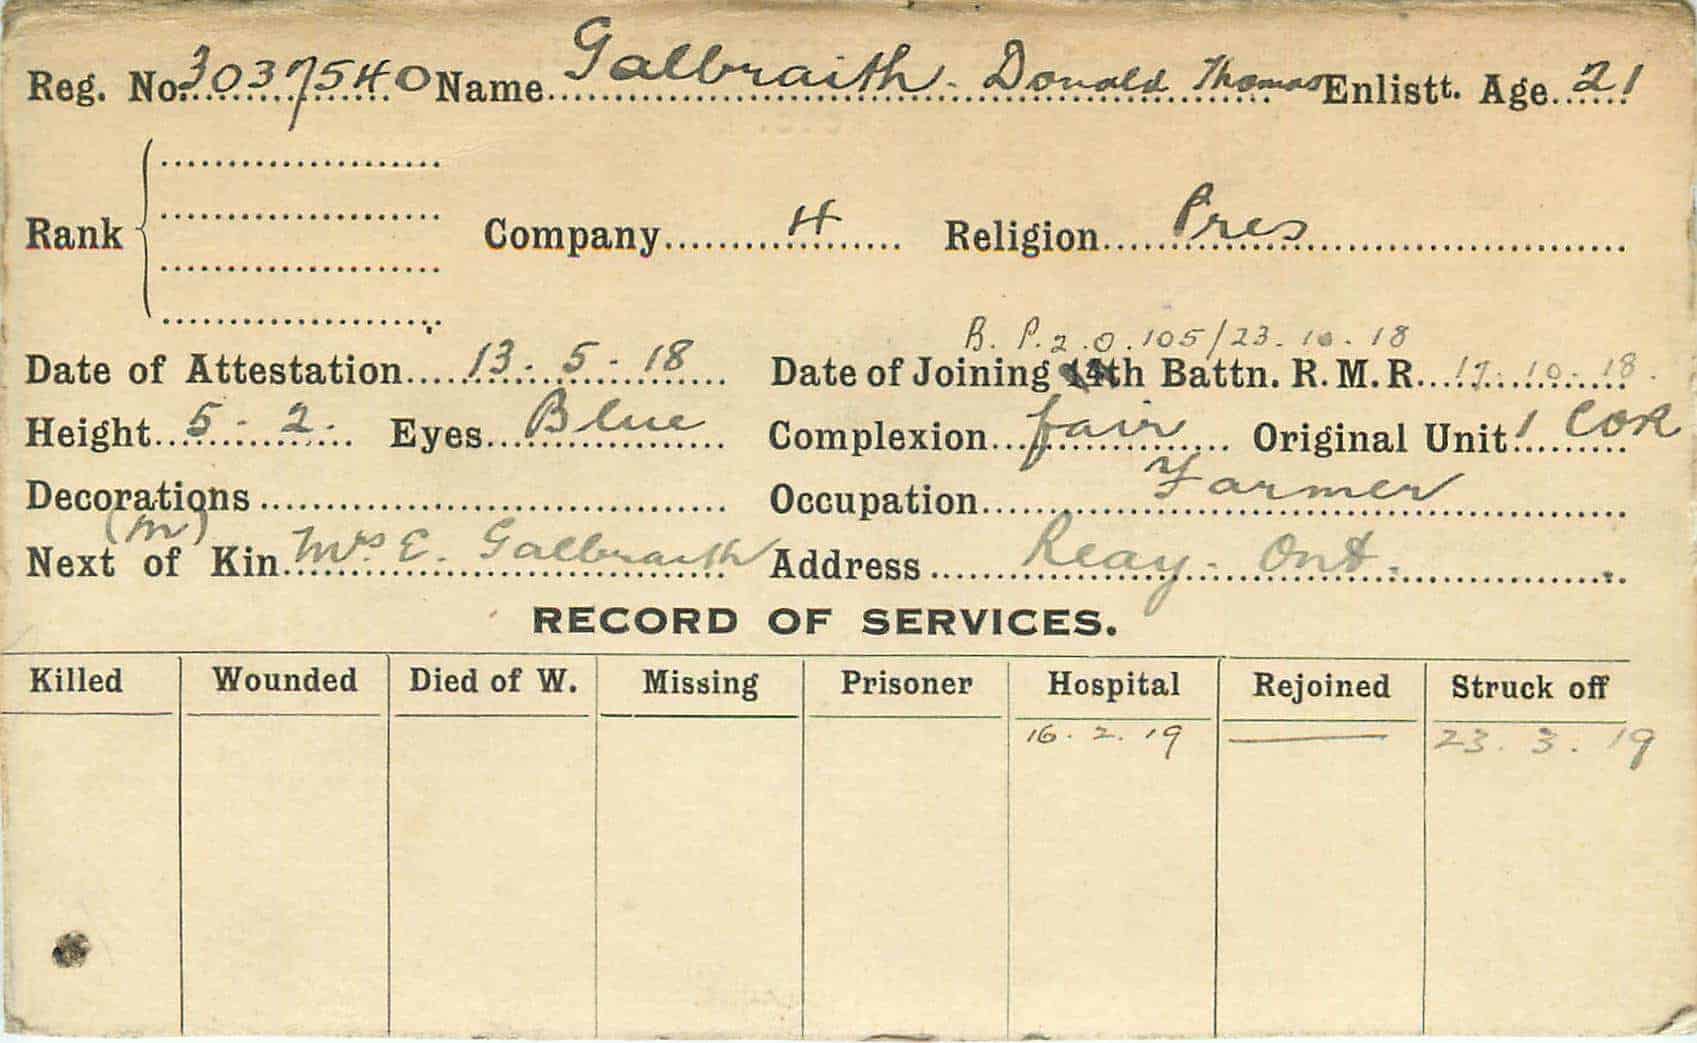 Reg. No. 3037540 Name Galbraith. Donald Thomas Enlistt. Age 21
Rank Company 4 Religion Pres
B. P. 2. O. 105/23.10.18
Date of Attestation 13.5.18 Date of Joining 14th Battn. R.M.R. 17.10.18.
Height 5-2. Eyes Blue Complexion fair Original Unit 1 COR
Decorations Occupation Farmer
(m)
Next of Kin Mrs E. Galbraith Address Reay. Ont.
RECORD OF SERVICES.
Killed Wounded Died of W. Missing Prisoner Hospital Rejoined Struck off
16.2.19 23.3.19